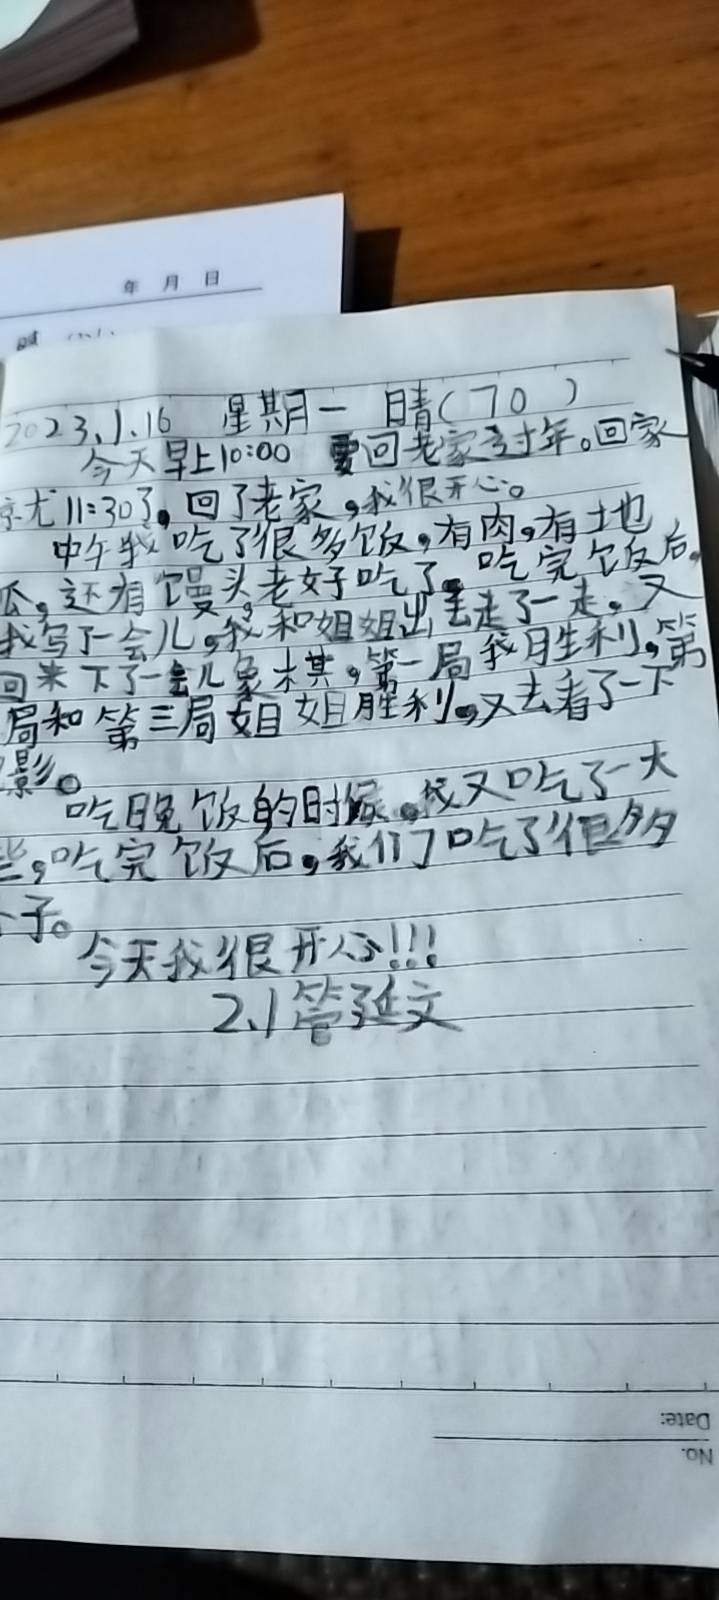 年 月 日
2023.1.16 星期一 晴(70)
今天早上10:00 要回老家过年。回家
就11:30了，回了老家，我很开心。
中午我吃了很多饭，有肉，有土地
瓜，还有馒头，老好吃了。吃完饭后，
我写了一会儿，我和姐姐出去走了一走。又
回来下了一会儿象棋，第一局我胜利，第
局和第三局姐姐胜利，又去看了一下
影。
吃晚饭的时候，我又吃了一大
些，吃完饭后，我们吃了很多
子。
今天我很开心!!!
2.1管延文
Date:
No.